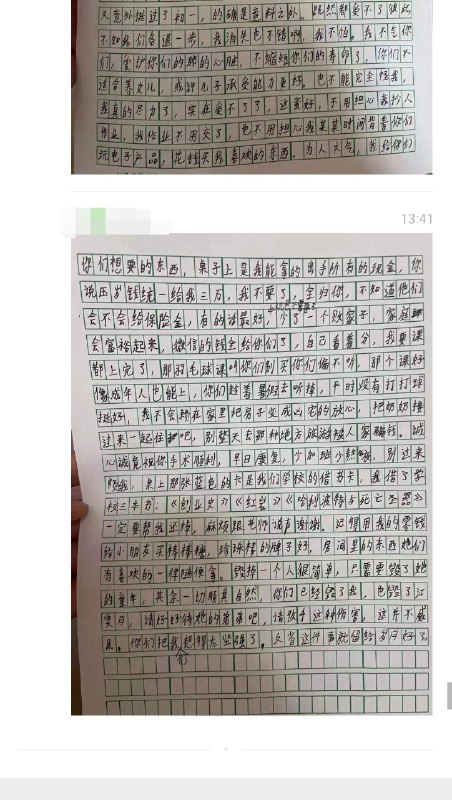 又意外挺过了初一，的确是意料之外。既然都受不了彼此
不如我们各退一步，我消失也不错啊，我不怕。我不气你
们，宝护你们的脆的心脏，不缩短你们的寿命了，你们不
适合养女儿，或许儿子承受能力更好。也不能完全怪我，
我真的尽力了，实在受不了了。这多好，不用担心我抄人
作业，我作业不用交了，也不用担心我某某时间背着你们
玩电子产品，花钱买我喜欢的东西。为人大气，我给你们
13:41
你们想要的东西，桌子上是我能拿的出手的所有的现金，你
说压岁钱统一给我三万，我不要了，全归你，不知道他们
会不会给保险金，有的话最好，少了一个败家子，家庭
会富裕起来，微信的钱全给你们了，自己看着分，我要课
都上完了，那羽毛球课叫你们别买你们偏不听，那个课好
像成年人也能上，你们趁着暑假去听，平时没有打打球
挺好，我不会顾在家里把房子变成凶宅的放心，把奶奶接
过来一起住吧，别整天去那种地方被人家骗钱。诚
心诚意祝你手术顺利，早日康复，少加班少熬，别过来
我，桌上那张蓝色的卡是我们学校的借书卡，我借了学
校三本书：《创业史》《红岩》《哈利波特与死亡圣器》
一定要帮我还掉，麻烦跟老师说声谢谢。记得用我的零钱
给小朋友买棒棒糖，珍珠棒的牌子好，房间里的东西她们
有喜欢的一律随便拿。毁掉一个人很简单，只需要毁了她
的童年，其余一切顺其自然，你们已经毁了我，也毁了江
月，请好好待她的弟弟吧，请放手这种伤害。这并不感
是。你们把我想得太坚强了。反省这件事就留给岁月好了。